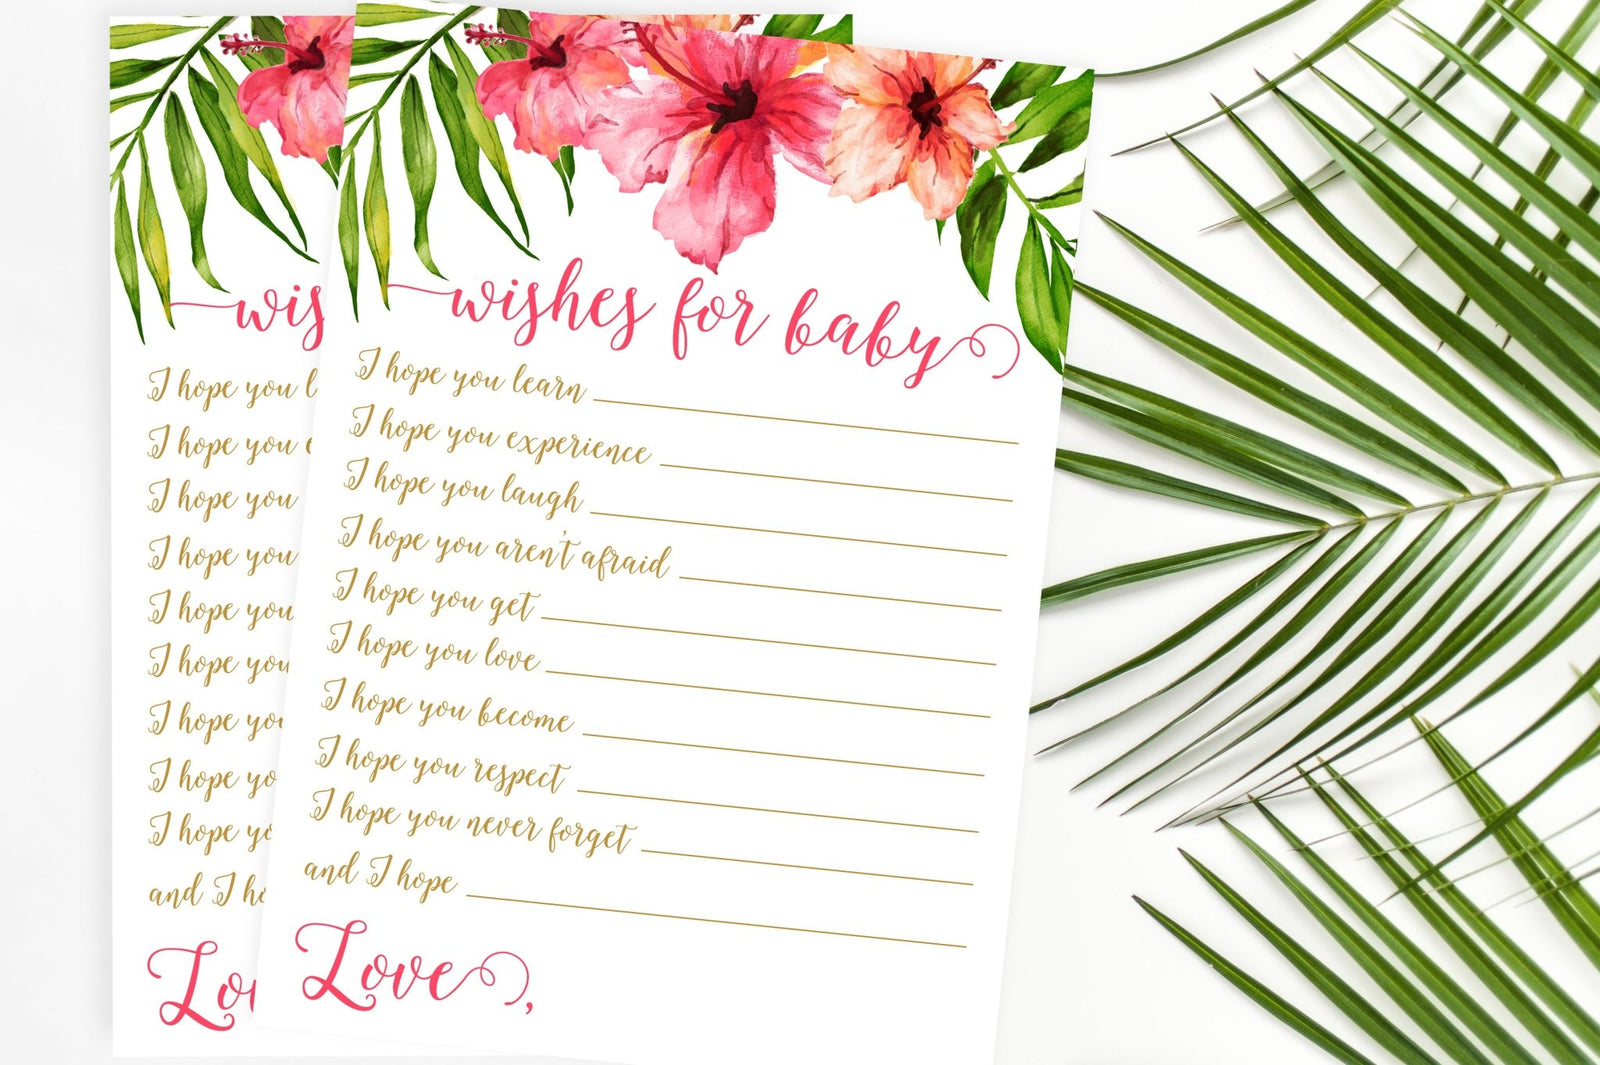 wishes for baby
I hope you learn
I hope you experience
I hope you laugh
I hope you aren't afraid
I hope you get
I hope you love
I hope you become
I hope you respect
I hope you never forget
and I hope
Love,
wis
I hope you l
I hope you e
I hope you
I hope you
I hope you
I hope you
I hope you
I hope yo
I hope yo
and I ho
Lov